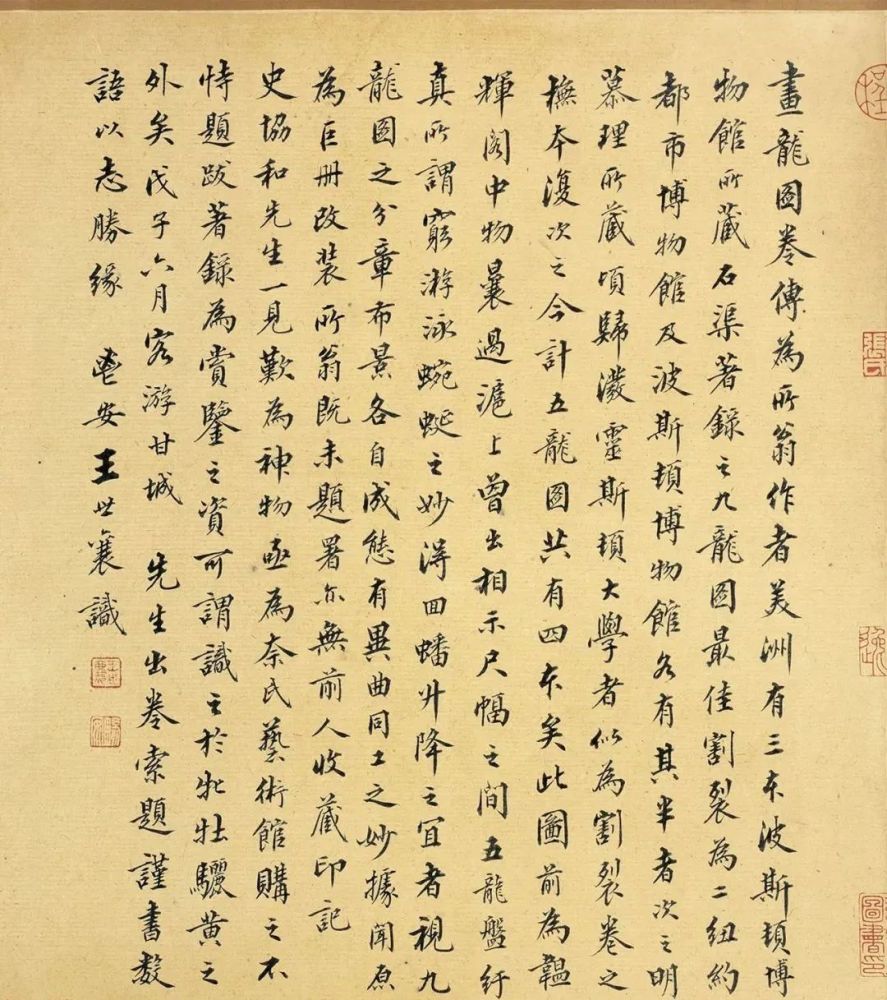 畫龍圖卷傳為所翁作者美洲有三本波斯頓博
物館所藏石渠著錄之九龍圖最佳割裂為二紐約
都市博物館及波斯頓博物館各有其半者次之明
慕理所藏頃歸潑靈斯頓大學者似為割裂卷之
橅本復次之今計五龍圖共有四本矣此圖前為韞
輝閣中物曩過滬上曾出相示尺幅之間五龍盤紆
真所謂窮游泳蜿蜒之妙得回蟠升降之宜者視九
龍圖之分章布景各自成態有異曲同工之妙據聞原
為巨冊改裝所翁既未題署亦無前人收藏印記
史協和先生一見歎為神物亟為奈氏藝術館購之不
恃題跋著錄為賞鑒之資可謂識之於牝牡驪黃之
外矣戊子六月客游甘城 先生出卷索題謹書數
語以志勝緣 鬯安王世襄識